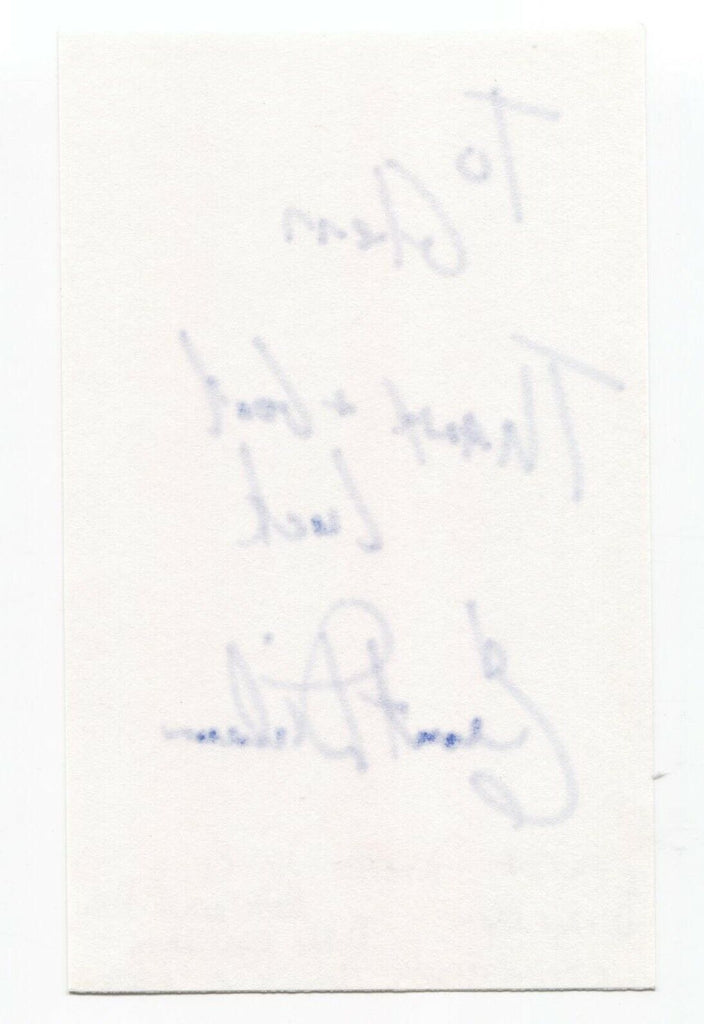 To
Glenn
Thanks & Good
Luck